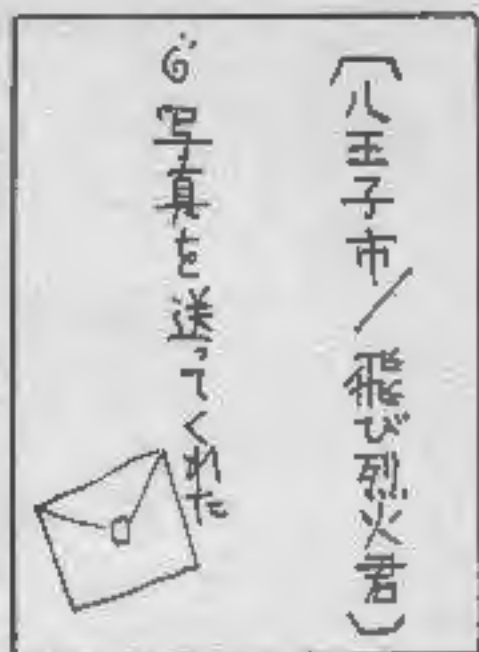 (八王子市/飛び烈火君)
写真を送ってくれた